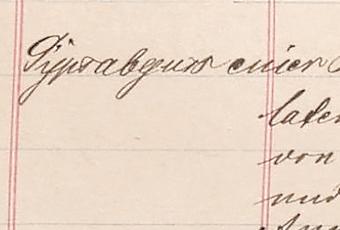 Gypsabguss einer
later
von
und